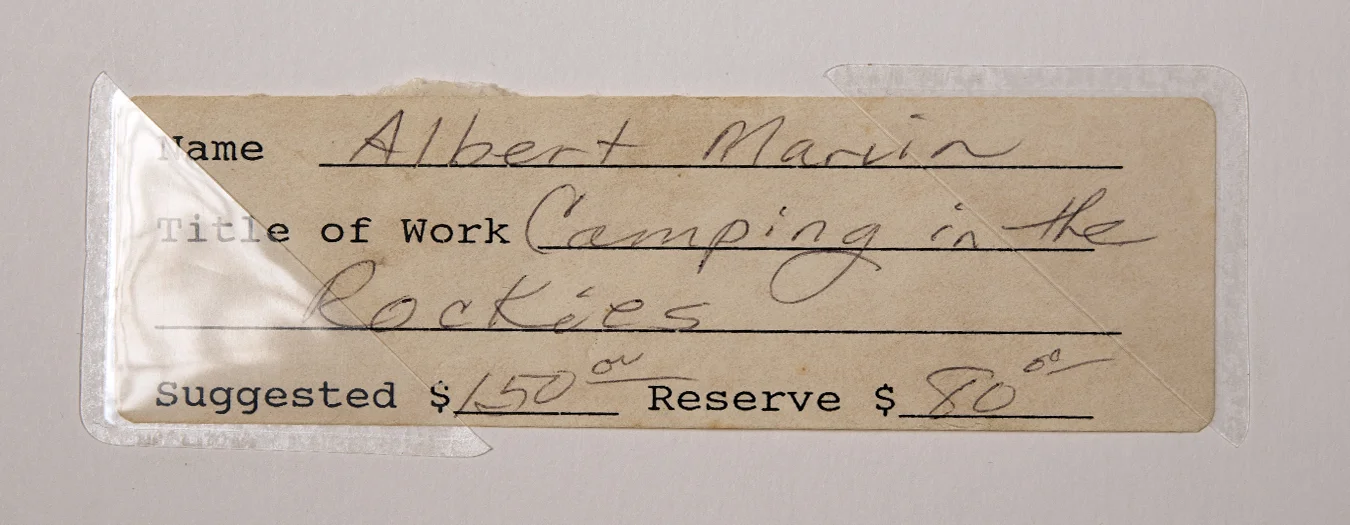 Name Albert Marvin
Title of Work Camping in the
Rockies
Suggested $150 00 Reserve $80 00